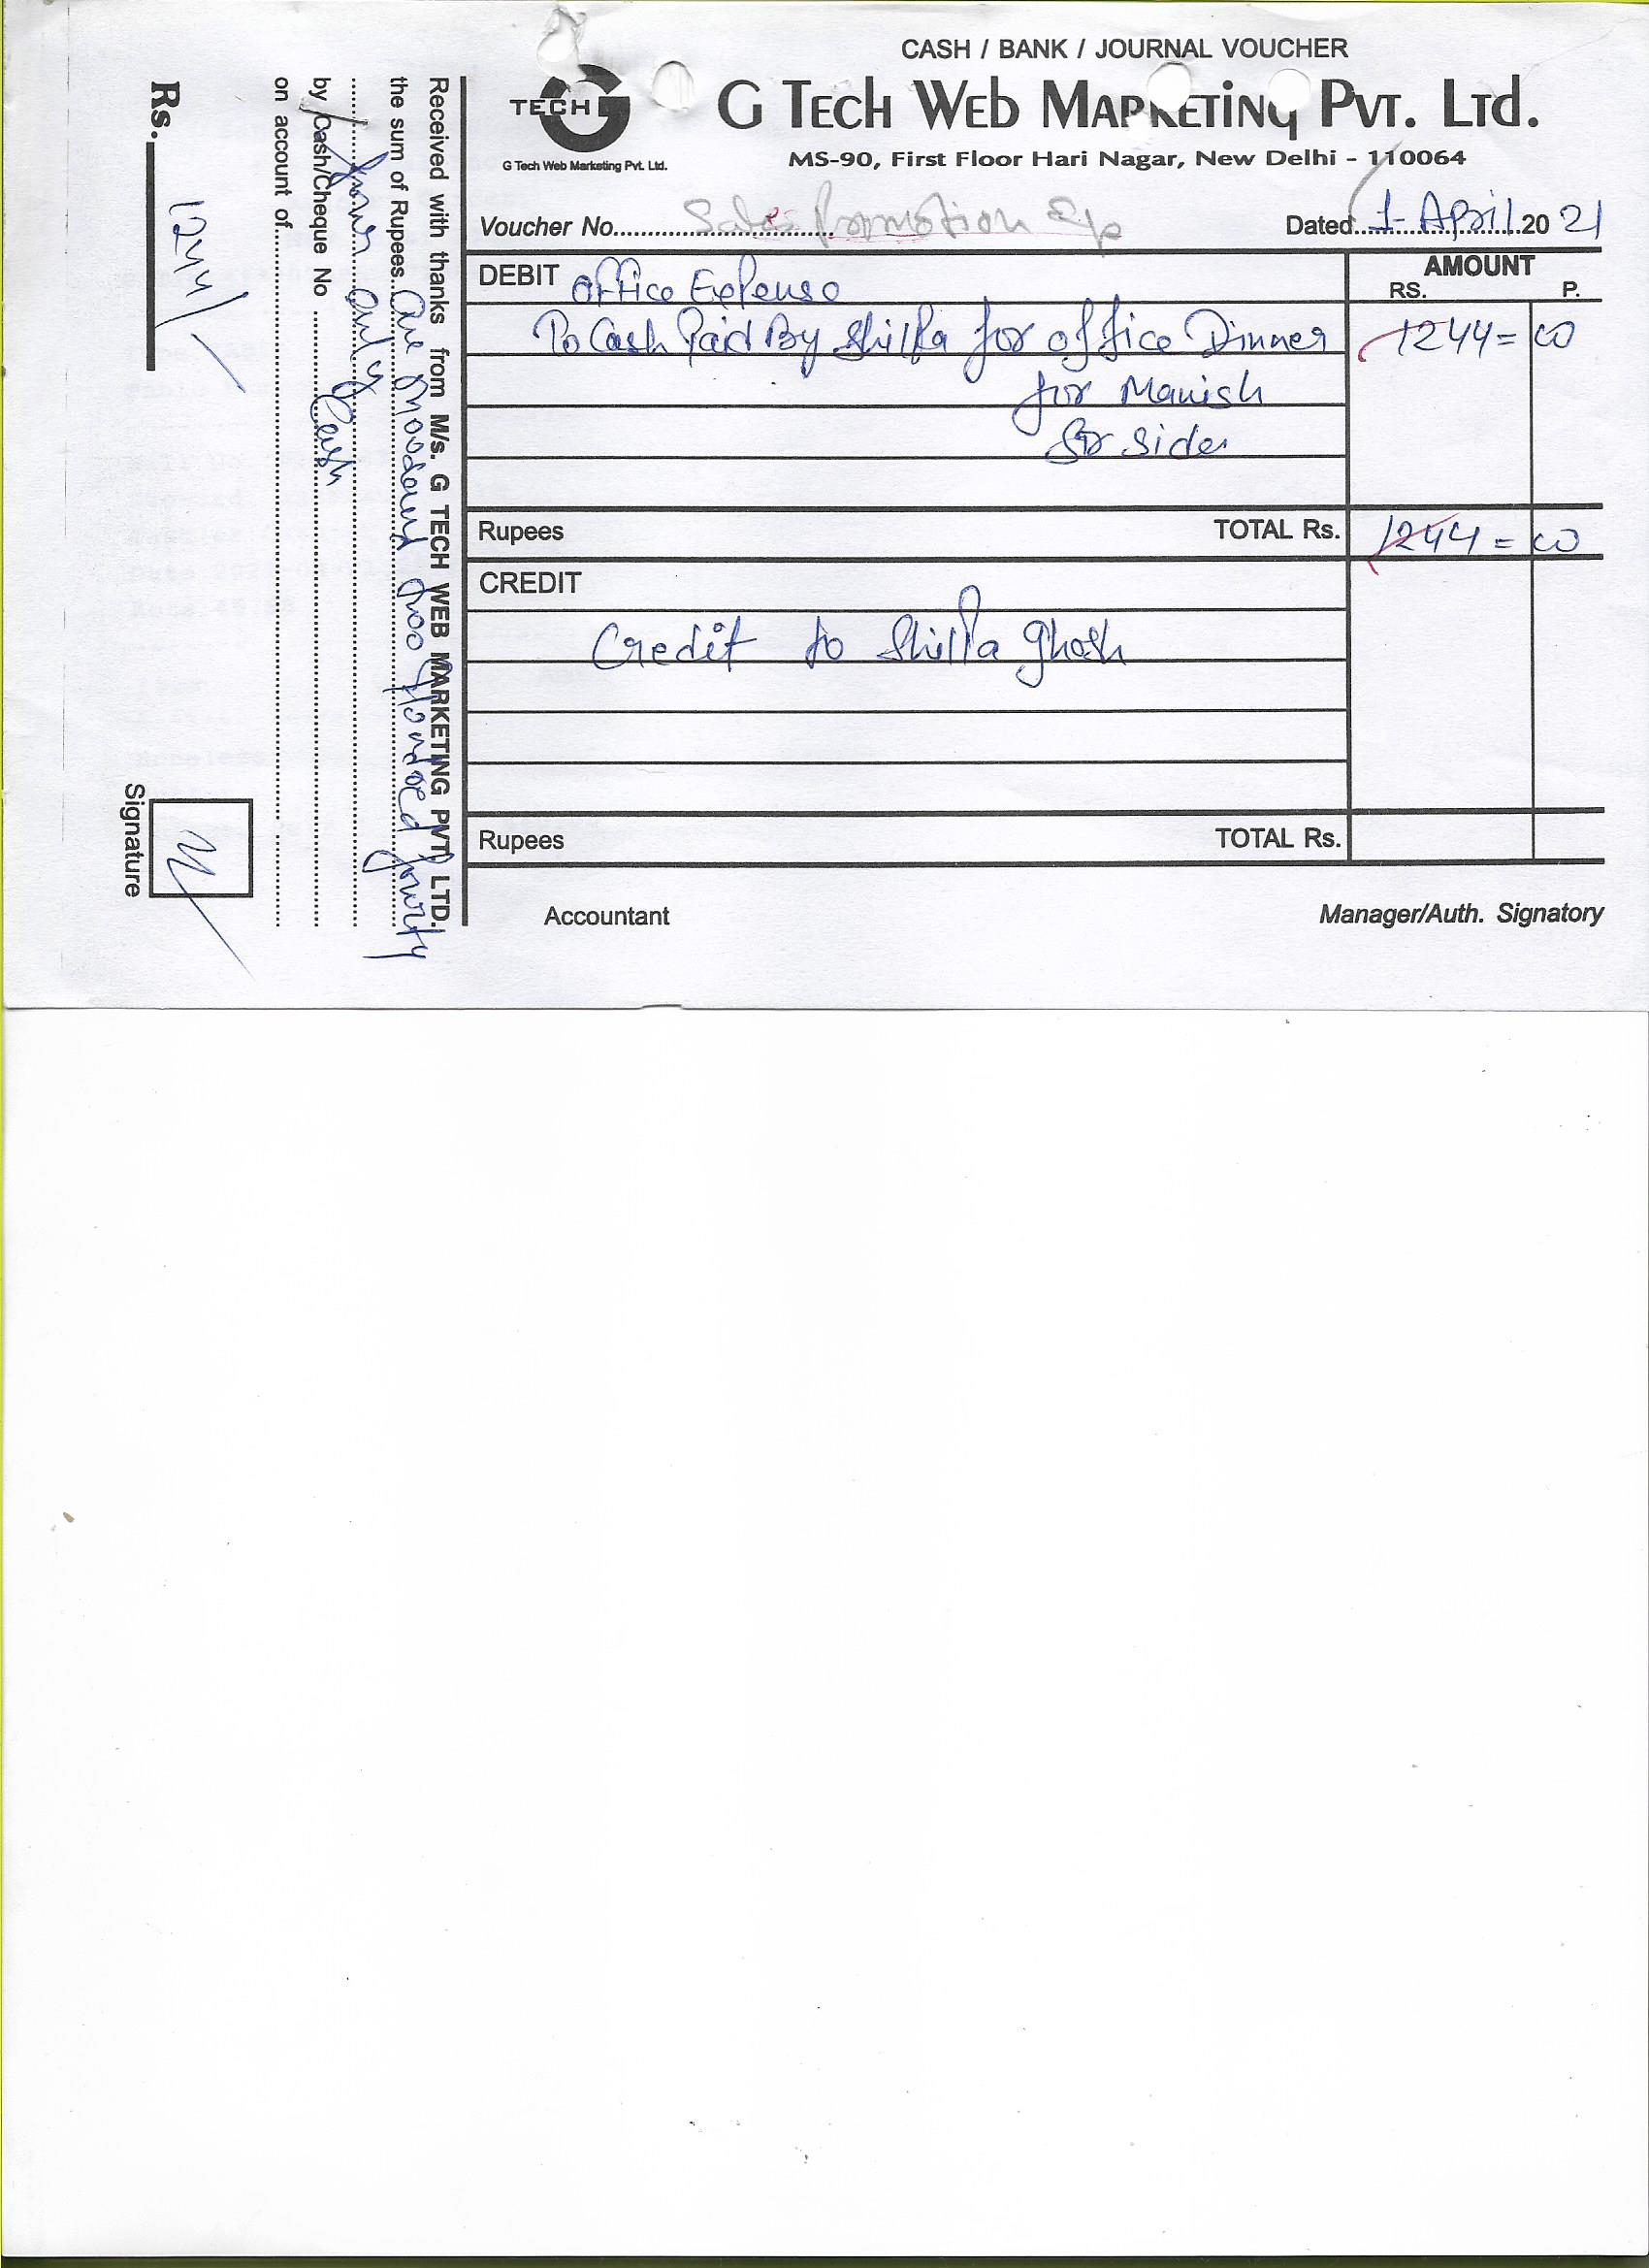 CASH / BANK / JOURNAL VOUCHER
TECH G
G Tech Web Marketing Pvt. Ltd.
G Tech Web Marketing Pvt. Ltd.
MS-90, First Floor Hari Nagar, New Delhi - 110064
Voucher No. Sales Promotion Exp
Dated 1- April 2021
DEBIT Office Expense
AMOUNT
RS. P.
To Cash Paid By Shilpa for office Dinner 1244=00
for Manish
Sir side
Rupees TOTAL Rs. 1244=00
CREDIT
Credit to Shilpa Ghosh
Rupees TOTAL Rs.
Accountant Manager/Auth. Signatory
Received with thanks from M/s. G TECH WEB MARKETING PVT. LTD.
the sum of Rupees One Thousand Two Hundred fourty
four only
by Cash/Cheque No Cash
on account of
Rs. 1244/
Signature